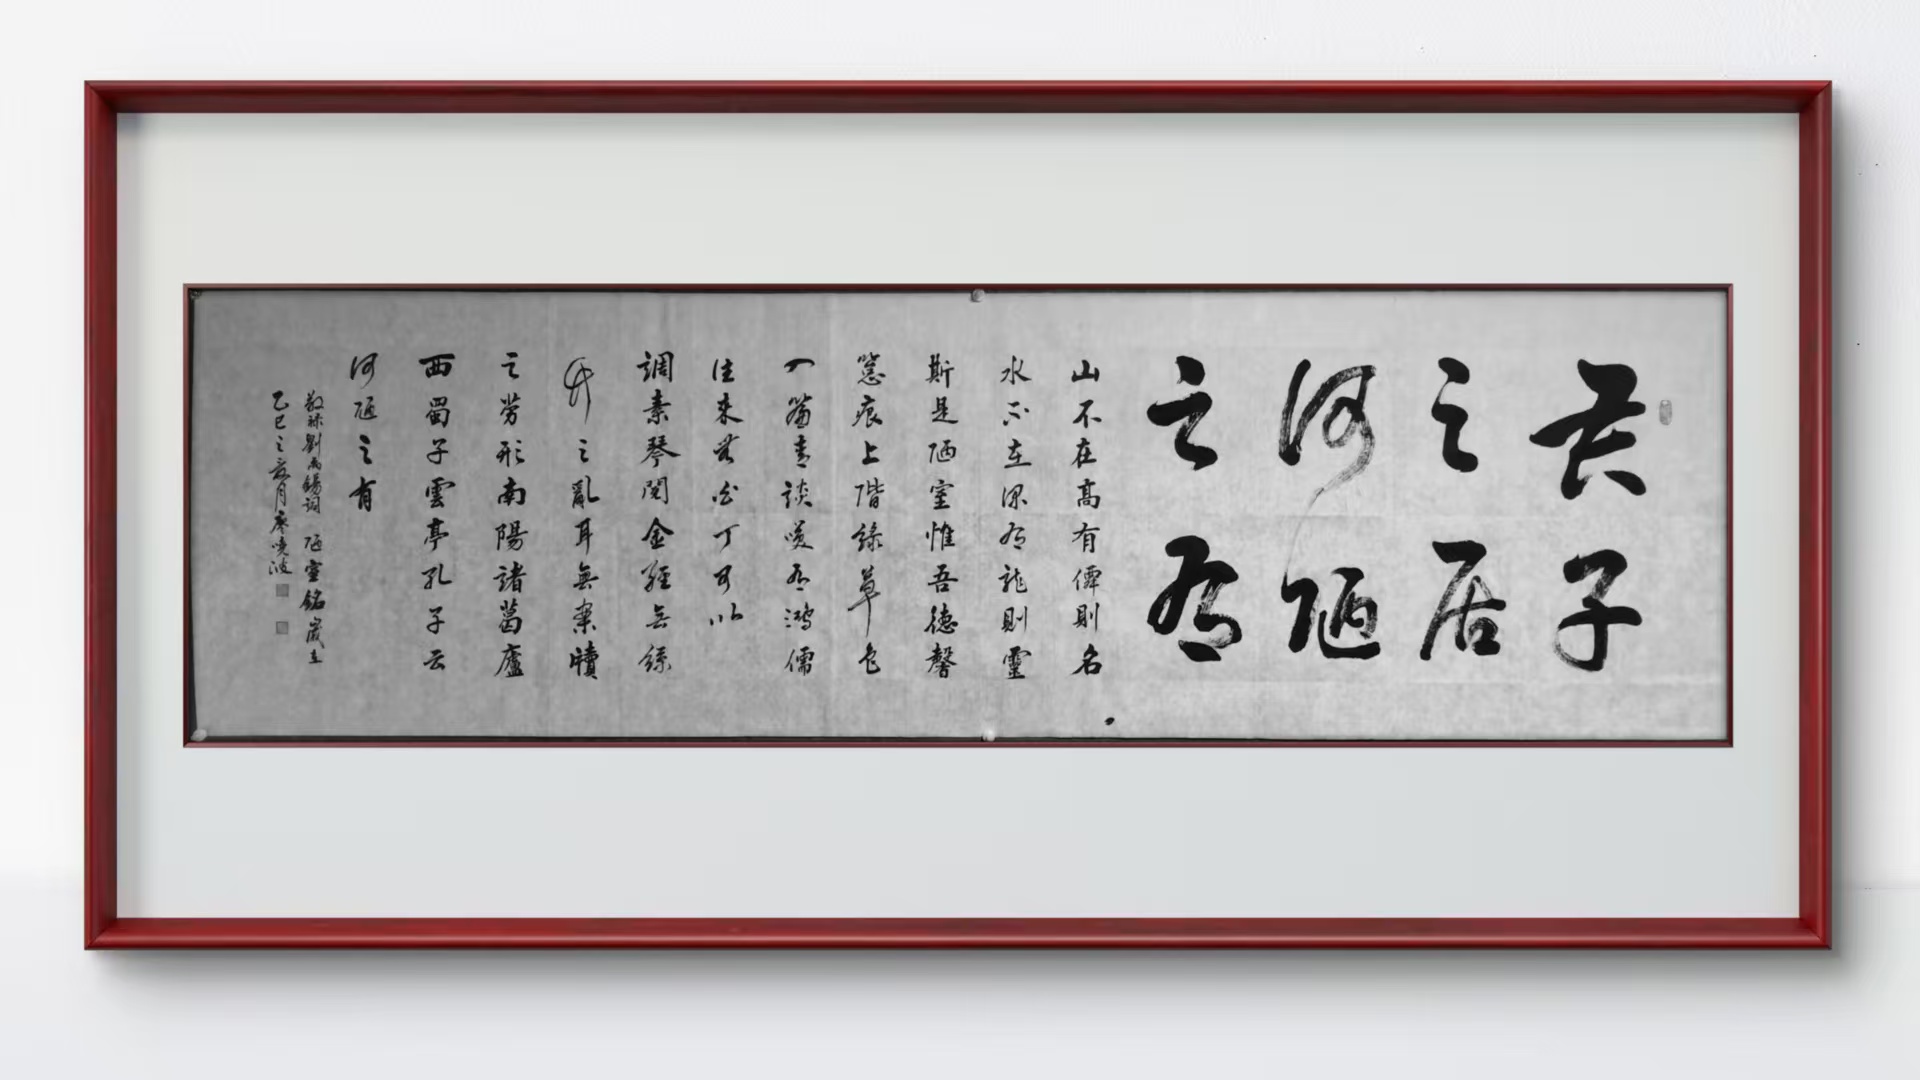 君子
之居
何陋
之有
山不在高有僊則名
水不在深有龍則靈
斯是陋室惟吾德馨
痕上階綠草色
入簾青談笑有鴻儒
往來無白丁可以
調素琴閱金經無絲
竹之亂耳無案牘
之勞形南陽諸葛廬
西蜀子雲亭孔子云
何陋之有
敬錄劉禹錫詞 陋室銘 歲在
乙巳之月廖曉波